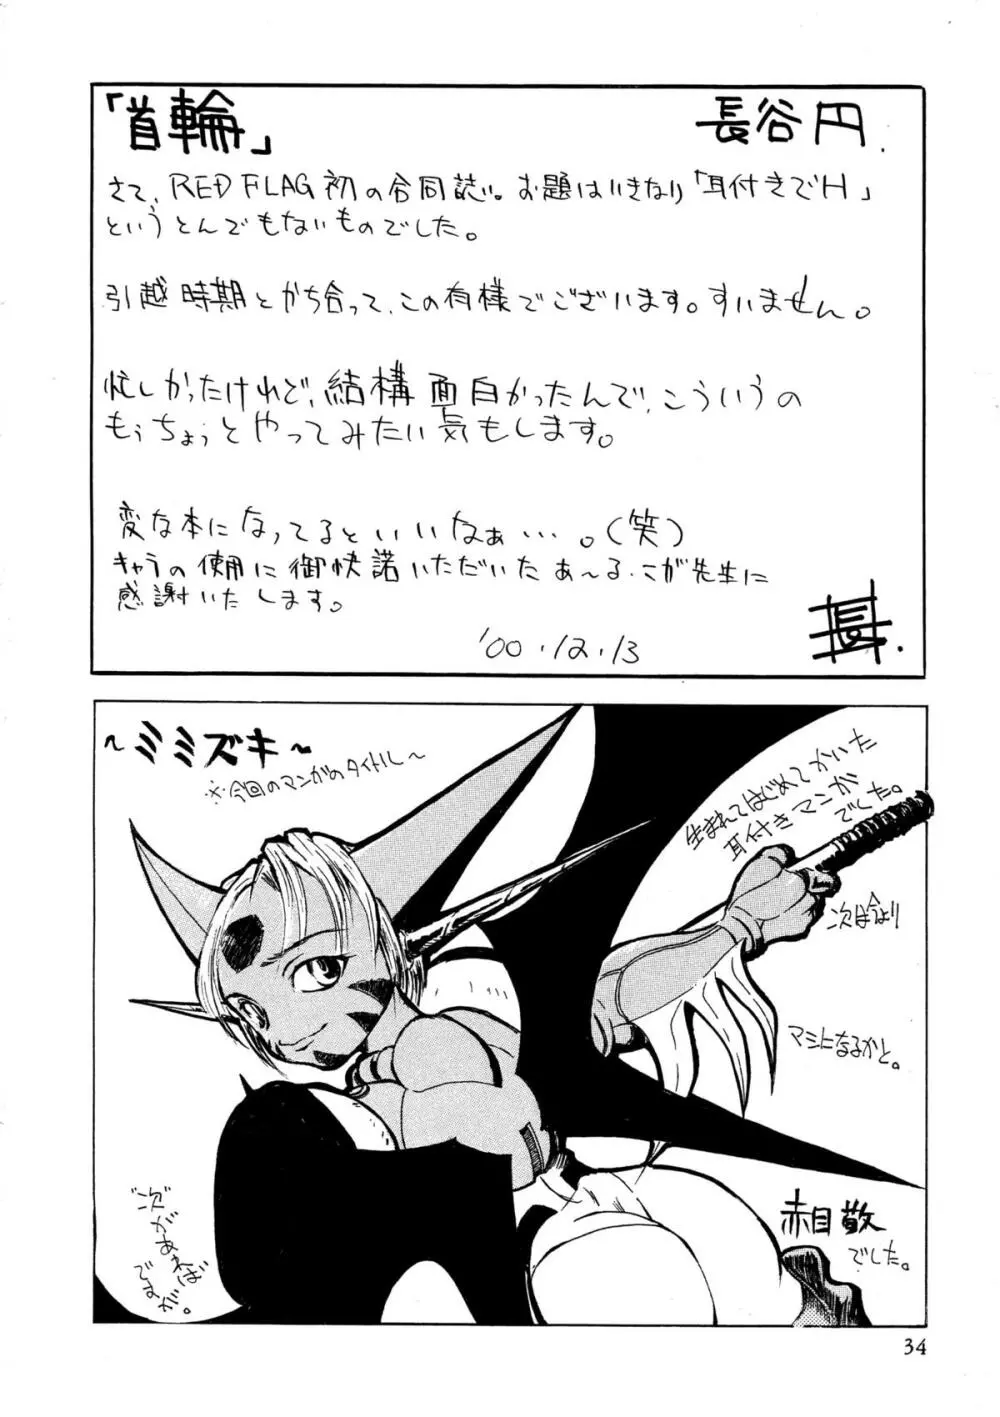 「首輪」
長谷円.
さて、RED FLAG初の合同誌。お題はいきなり「耳付きでH」
というとんでもないものでした。
引越時期とかち合って、この有様でございます。すいません。
忙しかったけれど、結構面白かったんで、こういうの
もうちょっとやってみたい気もします。
変な本になってるといいなぁ…。(笑)
キャラの使用に御快諾いただいたあ〜る・こが先生に
感謝いたします。
'00.12.13
長.
〜ミミズキ〜
※今回のマンガのタイトル〜
生まれてはじめてかいた
耳付きマンガ
でした。
次は今より
マシになるかと。
"次"
があれば
ですが。
赤目敬
でした。
34